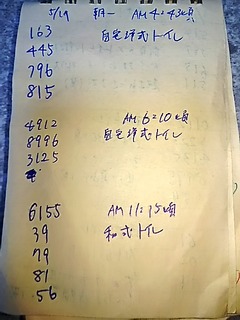 5/19 朝一 AM4:43頃
163 自宅洋式トイレ
445
796
815
AM 6:10頃
4912 自宅洋式トイレ
8996
3125
6155 AM 11:15頃
39 和式トイレ
79
81
56